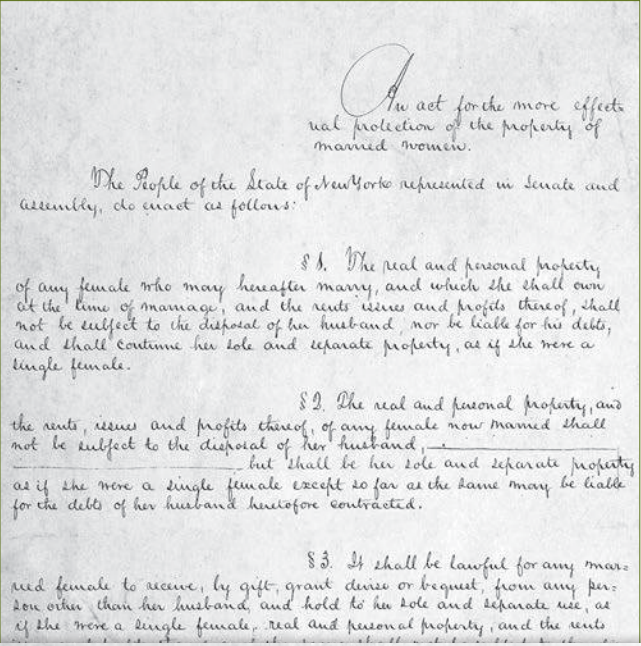 An act for the more effect-
ual protection of the property of
married women.
The People of the State of New York represented in Senate and
Assembly, do enact as follows:
§ 1. The real and personal property
of any female who may hereafter marry, and which she shall own
at the time of marriage, and the rents issues and profits thereof, shall
not be subject to the disposal of her husband, nor be liable for his debts,
and shall continue her sole and separate property, as if she were a
single female.
§ 2. The real and personal property, and
the rents, issues and profits thereof, of any female now married shall
not be subject to the disposal of her husband,
but shall be her sole and separate property
as if she were a single female except so far as the same may be liable
for the debts of her husband heretofore contracted.
§ 3. It shall be lawful for any mar=
ried female to receive, by gift, grant devise or bequest, from any per=
son other than her husband, and hold to her sole and separate use, as
if she were a single female, real and personal property, and the rents